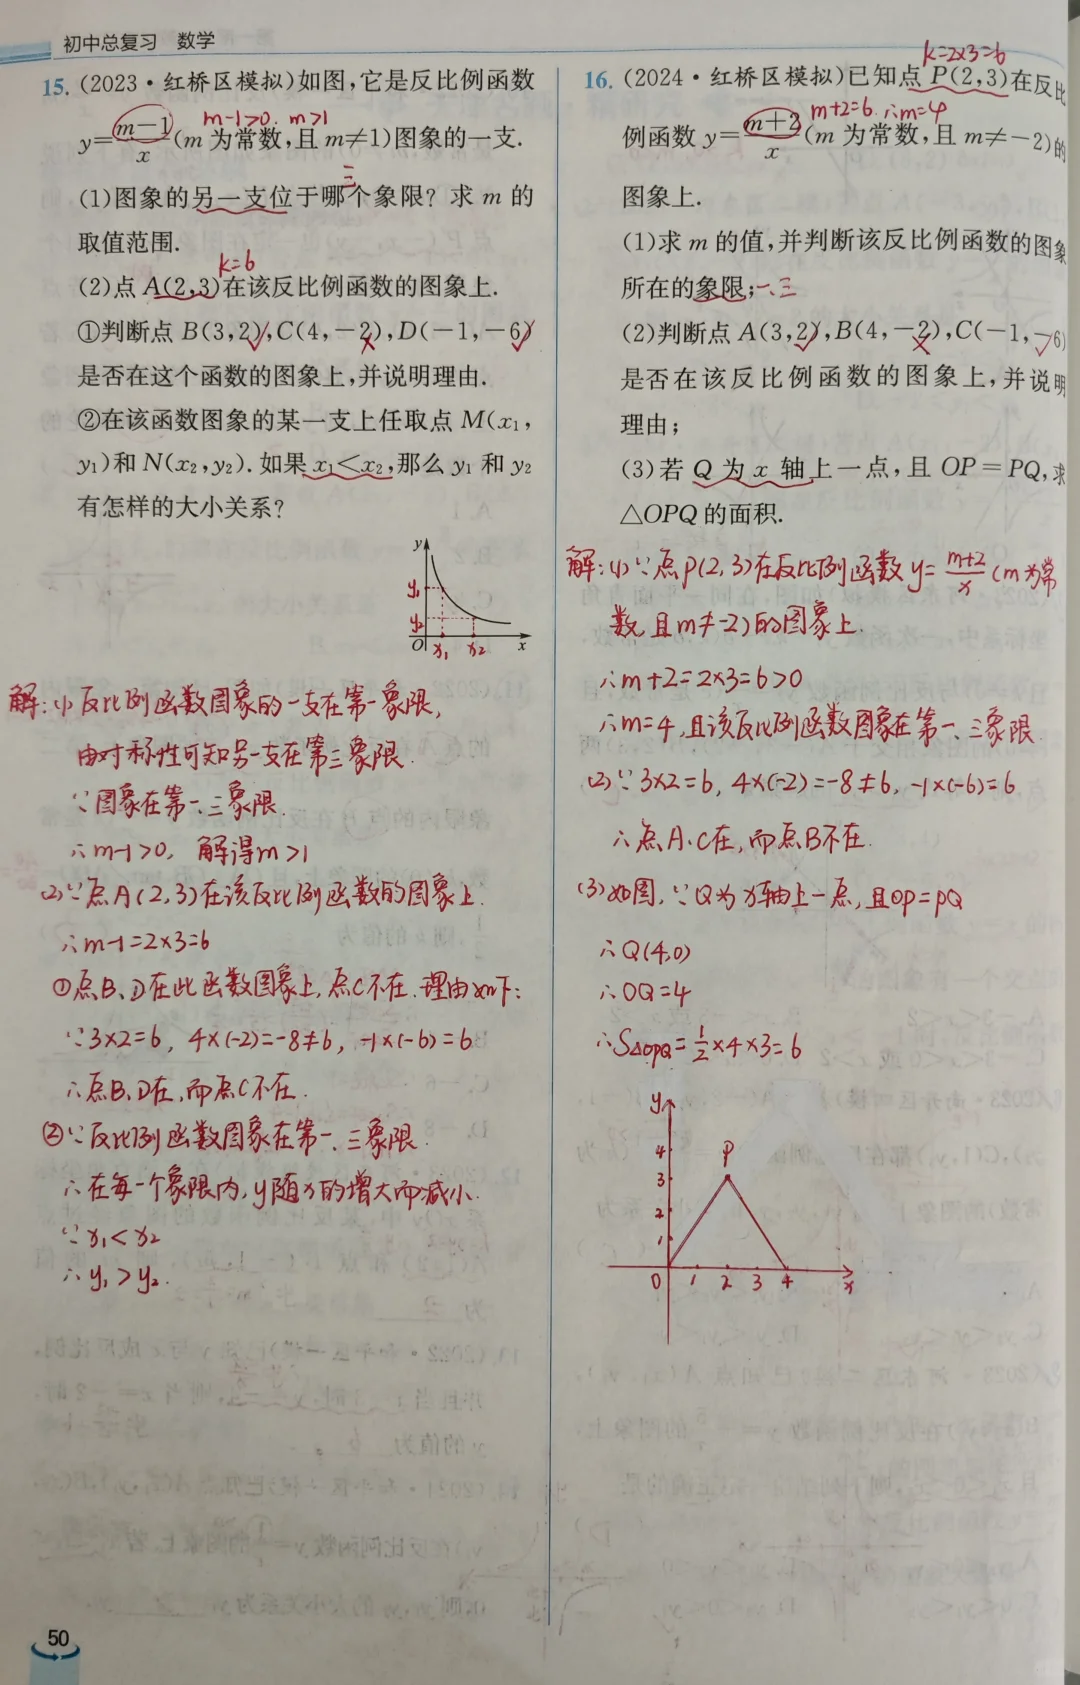 初中总复习 数学
15. (2023·红桥区模拟)如图,它是反比例函数
m-1>0. m>1
y=m-1/x(m 为常数,且 m≠1)图象的一支.
三
(1)图象的另一支位于哪个象限? 求 m 的
取值范围.
k=6
(2)点 A(2,3)在该反比例函数的图象上.
①判断点 B(3,2),C(4,-2),D(-1,-6)
是否在这个函数的图象上,并说明理由.
②在该函数图象的某一支上任取点 M(x₁,
y₁)和 N(x₂,y₂). 如果 x₁<x₂,那么 y₁ 和 y₂
有怎样的大小关系?
y
y₁
y₂
O x₁ x₂ x
解:(1)反比例函数图象的一支在第一象限,
由对称性可知另一支在第三象限.
∵图象在第一、三象限.
∴m-1>0, 解得m>1
(2)∵点A(2,3)在该反比例函数的图象上.
∴m-1=2×3=6
①点B、D在此函数图象上,点C不在.理由如下:
∵3×2=6, 4×(-2)=-8≠6, -1×(-6)=6
∴点B、D在,而点C不在.
②∵反比例函数图象在第一、三象限.
∴在每一个象限内,y随x的增大而减小.
∵x₁<x₂
∴y₁>y₂.
50
k=2×3=6
16. (2024·红桥区模拟)已知点 P(2,3)在反比
m+2=6. ∴m=4
例函数 y=m+2/x(m 为常数,且 m≠-2)的
图象上.
(1)求 m 的值,并判断该反比例函数的图象
所在的象限;一、三
(2)判断点 A(3,2),B(4,-2),C(-1,-6)
是否在该反比例函数的图象上,并说明
理由;
(3)若 Q 为 x 轴上一点,且 OP=PQ,求
△OPQ 的面积.
解:(1)∵点P(2,3)在反比例函数y=m+2/x(m为常
数,且m≠-2)的图象上.
∴m+2=2×3=6>0
∴m=4,且该反比例函数图象在第一、三象限.
(2)∵3×2=6, 4×(-2)=-8≠6, -1×(-6)=6
∴点A、C在,而点B不在.
(3)如图,∵Q为x轴上一点,且OP=PQ
∴Q(4,0)
∴OQ=4
∴S△OPQ=1/2×4×3=6
y
4
P
3
2
1
0 1 2 3 4 x